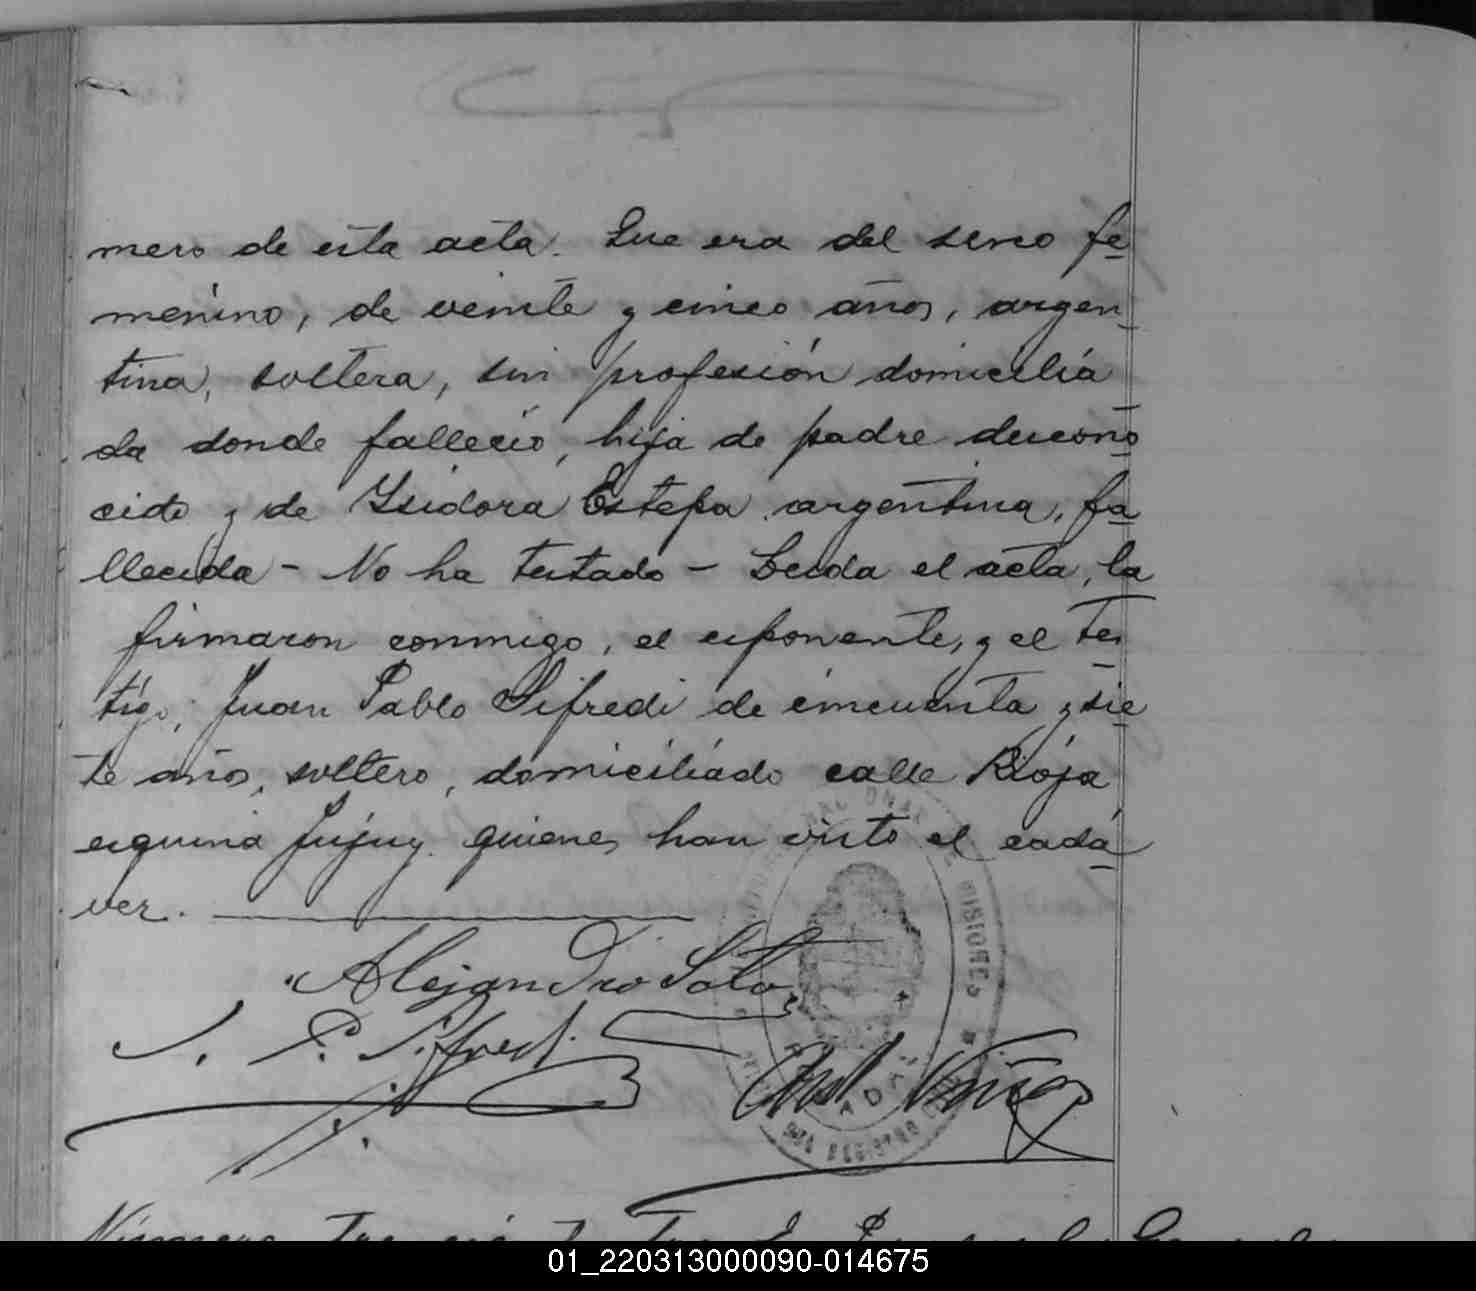 mero de esta acta. Que era del sexo fe
menino, de veinte y cinco años, argen
tina, soltera, sin profesión domicilia
da donde falleció, hija de padre descono
cido y de Ysidora Estepa argentina, fa
llecida - No ha testado - Leida el acta, la
firmaron conmigo, el exponente, y el tes
tigo, Juan Pablo Sifredi de cincuenta y sie
te años, soltero, domiciliado calle Rioja
esquina Jujuy quienes han visto el cadá
ver.
Alejandro Soto
J. P. Sifredi
Nuñez
MISIONES
REGISTRO
Número
01_220313000090-014675